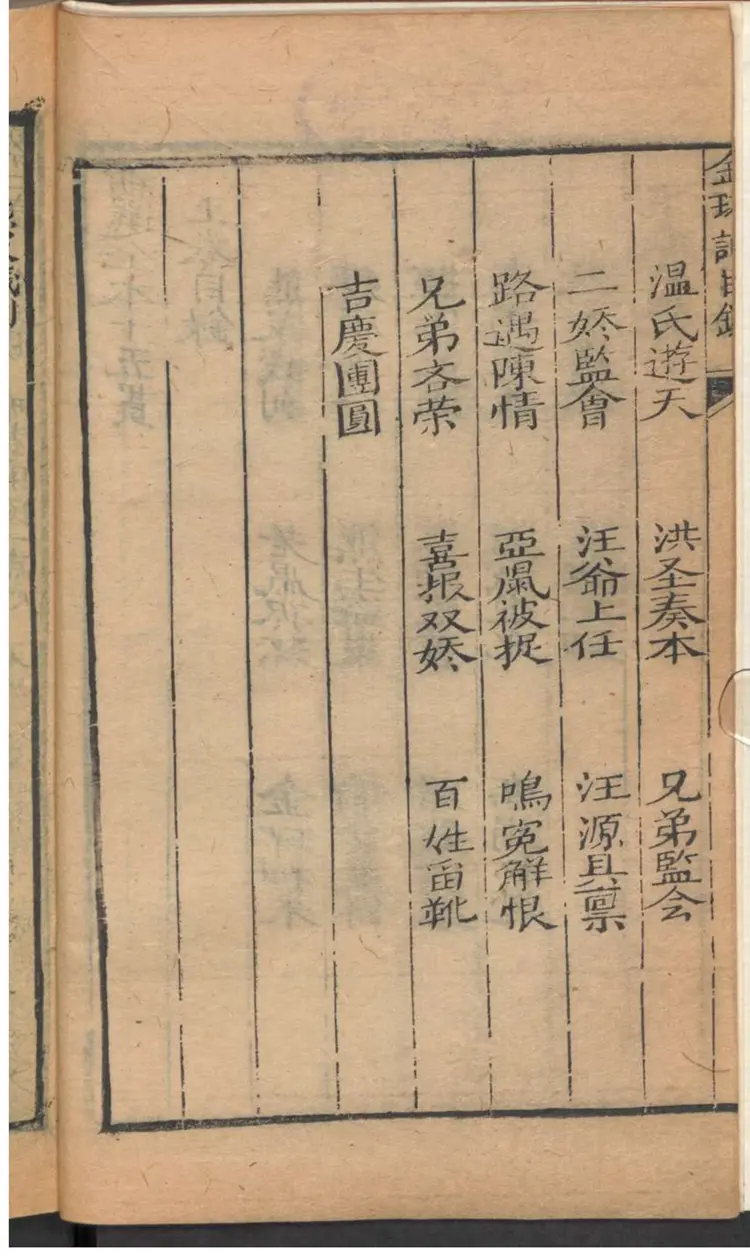 温氏遊天　洪圣奏本　兄弟監会
二娇監會　汪爺上任　汪源具禀
路遇陳情　亞鼠被捉　鳴冤解恨
兄弟吝荣　喜报双娇　百姓畄靴
吉慶團圓